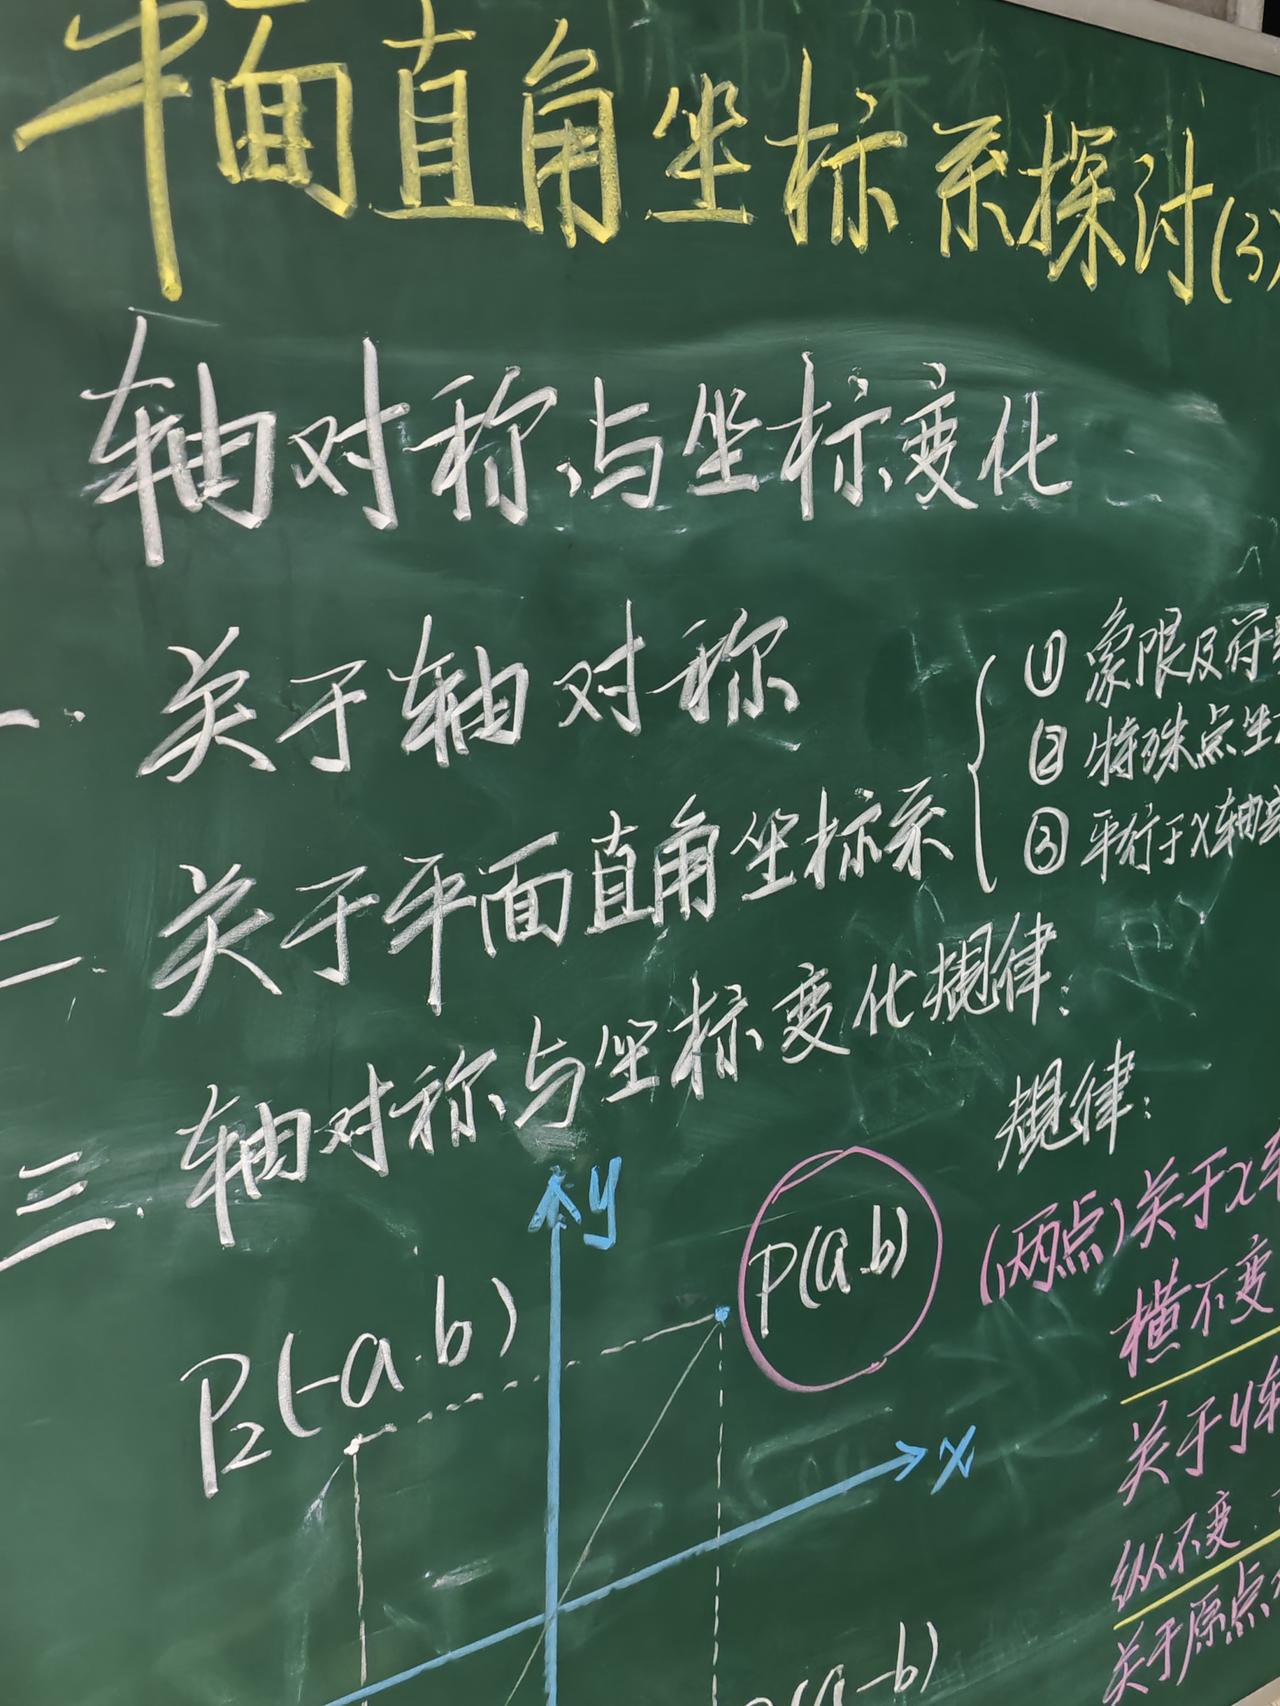 平面直角坐标系探讨(3)
轴对称与坐标变化
一. 关于轴对称
二. 关于平面直角坐标系
① 象限及符
② 特殊点坐
③ 平行于x轴
三. 轴对称与坐标变化规律:
规律:
y
P(a.b)
(两点)关于x
横不变
P₂(-a.b)
x
关于y轴
纵不变
关于原点
(a-b)